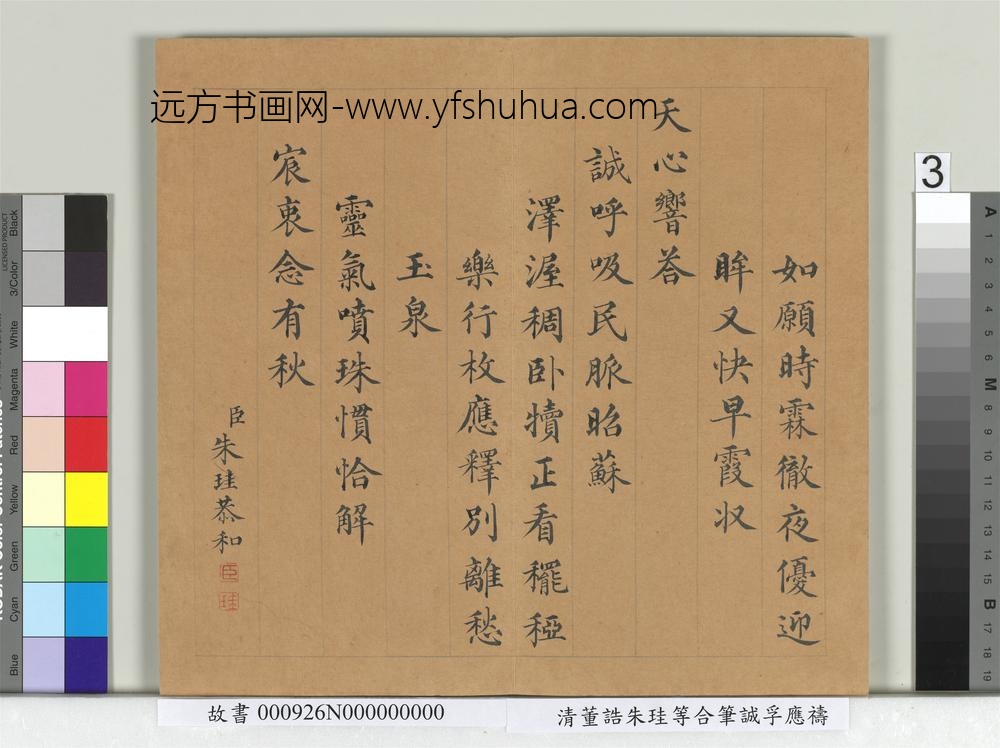 远方书画网-www.yfshuhua.com
如願時霖徹夜優迎
眸又快早霞収
天心響荅
誠呼吸民脈昭蘇
澤渥稠卧犢正看䆉稏
樂行枚應釋別離愁
玉泉
靈氣噴珠慣恰解
宸衷念有秋
臣朱珪恭和
臣
珪
3
故書 000926N000000000
清董誥朱珪等合筆誠孚應禱
LICENSED PRODUCT
Black
3/Color
White
Magenta
Red
Yellow
Green
Cyan
Blue
A
1
2
3
4
5
6
M
8
9
10
11
12
13
14
15
B
17
18
19